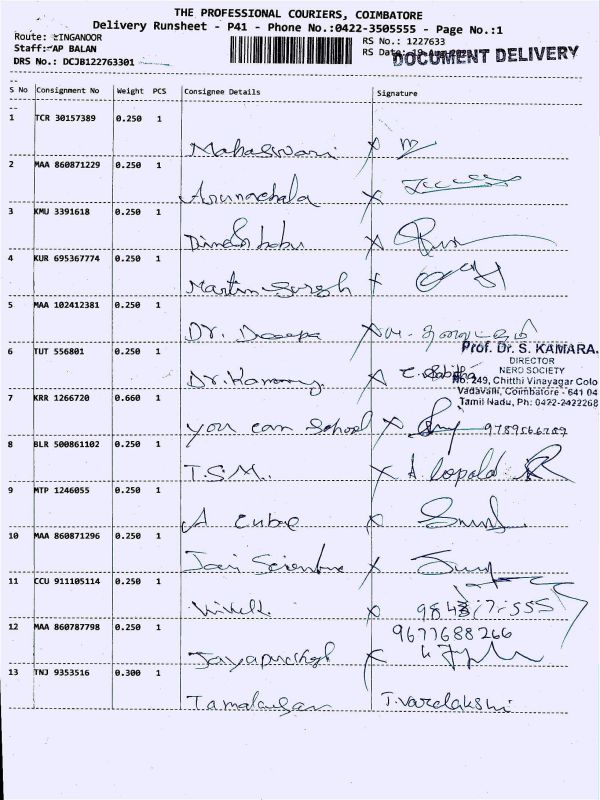 THE PROFESSIONAL COURIERS, COIMBATORE
Delivery Runsheet - P41 - Phone No.:0422-3505555 - Page No.:1
Route: LINGANOOR
RS No.: 1227633
Staff: AP BALAN
RS Date:
DOCUMENT DELIVERY
DRS No.: DCJB122763301
S No Consignment No Weight PCS Consignee Details Signature
1 TCR 30157389 0.250 1
Mahaswari X
2 MAA 860871229 0.250 1
Arunachala X
3 KMU 3391618 0.250 1
Dinesh babu X
4 KUR 695367774 0.250 1
Martin Suresh X
5 MAA 102412381 0.250 1
Dr. Deepa X
6 TUT 556801 0.250 1
Prof. Dr. S. KAMARA.
DIRECTOR
NERO SOCIETY
Dr. X
No: 249, Chitthi Vinayagar Colo
Vadavalli, Coimbatore - 641 04
Tamil Nadu, Ph: 0422-2422268
7 KRR 1266720 0.660 1
you can school X 9789566789
8 BLR 500861102 0.250 1
T.S.M. X A. lopald
9 MTP 1246055 0.250 1
A cube X
10 MAA 860871296 0.250 1
Jai X
11 CCU 911105114 0.250 1
X 9843717555
9677688266
12 MAA 860787798 0.250 1
Jayaprakash X
13 TNJ 9353516 0.300 1
T. Varelakshi